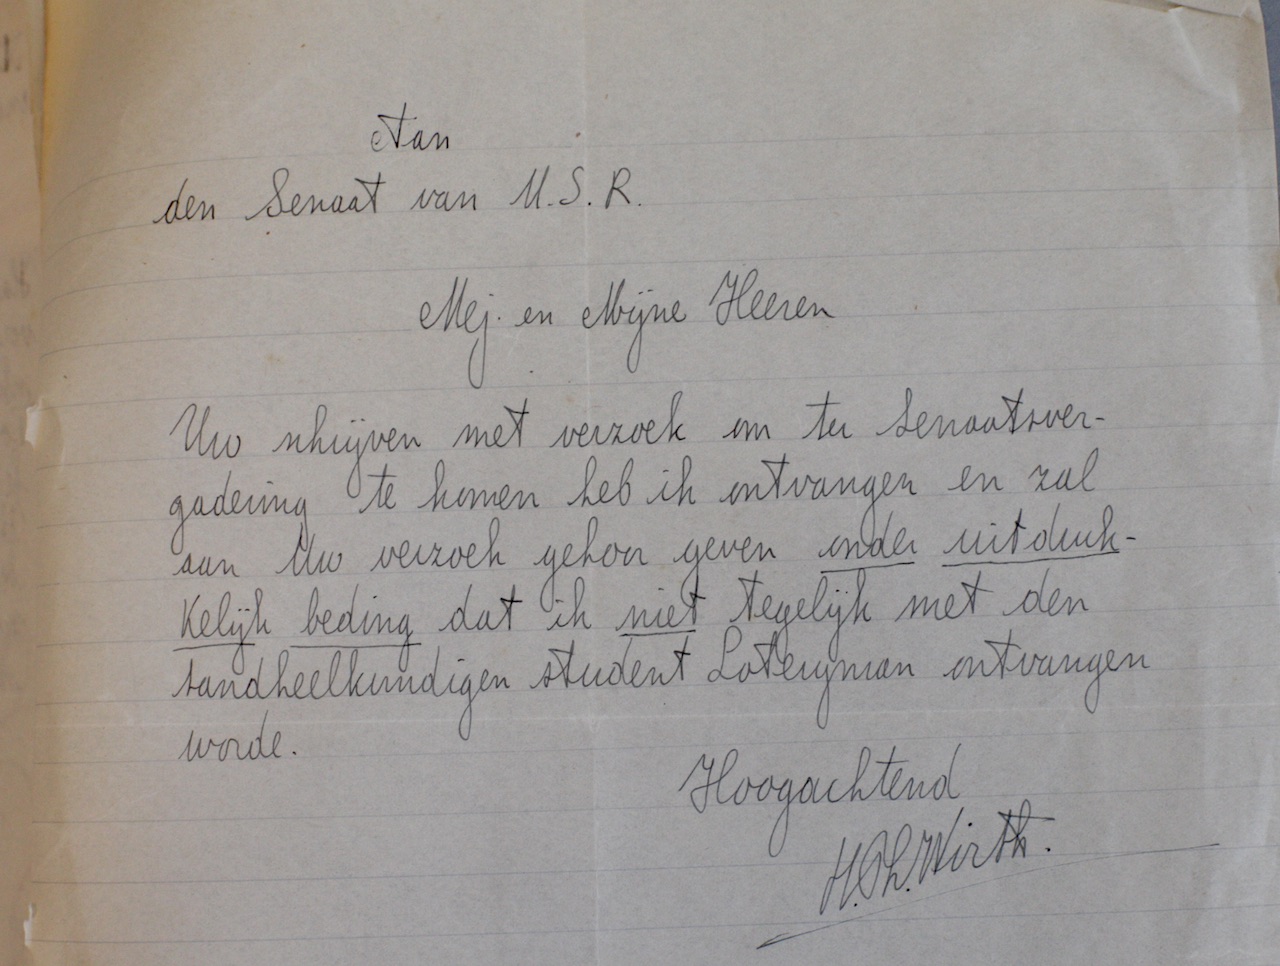 Aan
den Senaat van U.S.R.
Mej. en Mijne Heeren
Uw schrijven met verzoek om ter Senaatsver-
gadering te komen heb ik ontvangen en zal
aan Uw verzoek gehoor geven onder uitdruk-
kelijk beding dat ik niet tegelijk met den
tandheelkundigen student Loteryman ontvangen
worde.
Hoogachtend
H.Ph.Wirth.